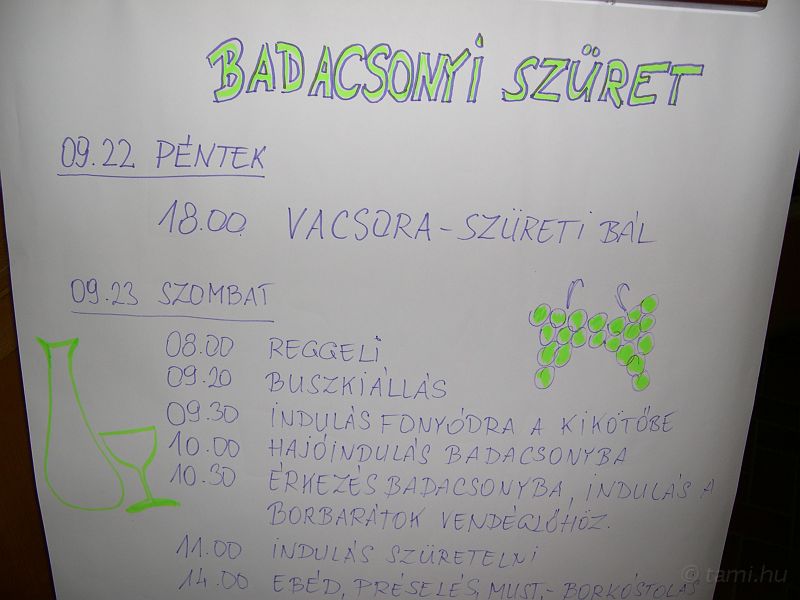 BADACSONYI SZÜRET
09.22 PÉNTEK
18.00 VACSORA - SZÜRETI BÁL
09.23 SZOMBAT
08.00 REGGELI
09.20 BUSZKIÁLLÁS
09.30 INDULÁS FONYÓDRA A KIKÖTŐBE
10.00 HAJÓINDULÁS BADACSONYBA
10.30 ÉRKEZÉS BADACSONYBA, INDULÁS A
BORBARÁTOK VENDÉGLŐHÖZ.
11.00 INDULÁS SZÜRETELNI
14.00 EBÉD, PRÉSELÉS, MUST,- BORKÓSTOLÁS
© tami.hu